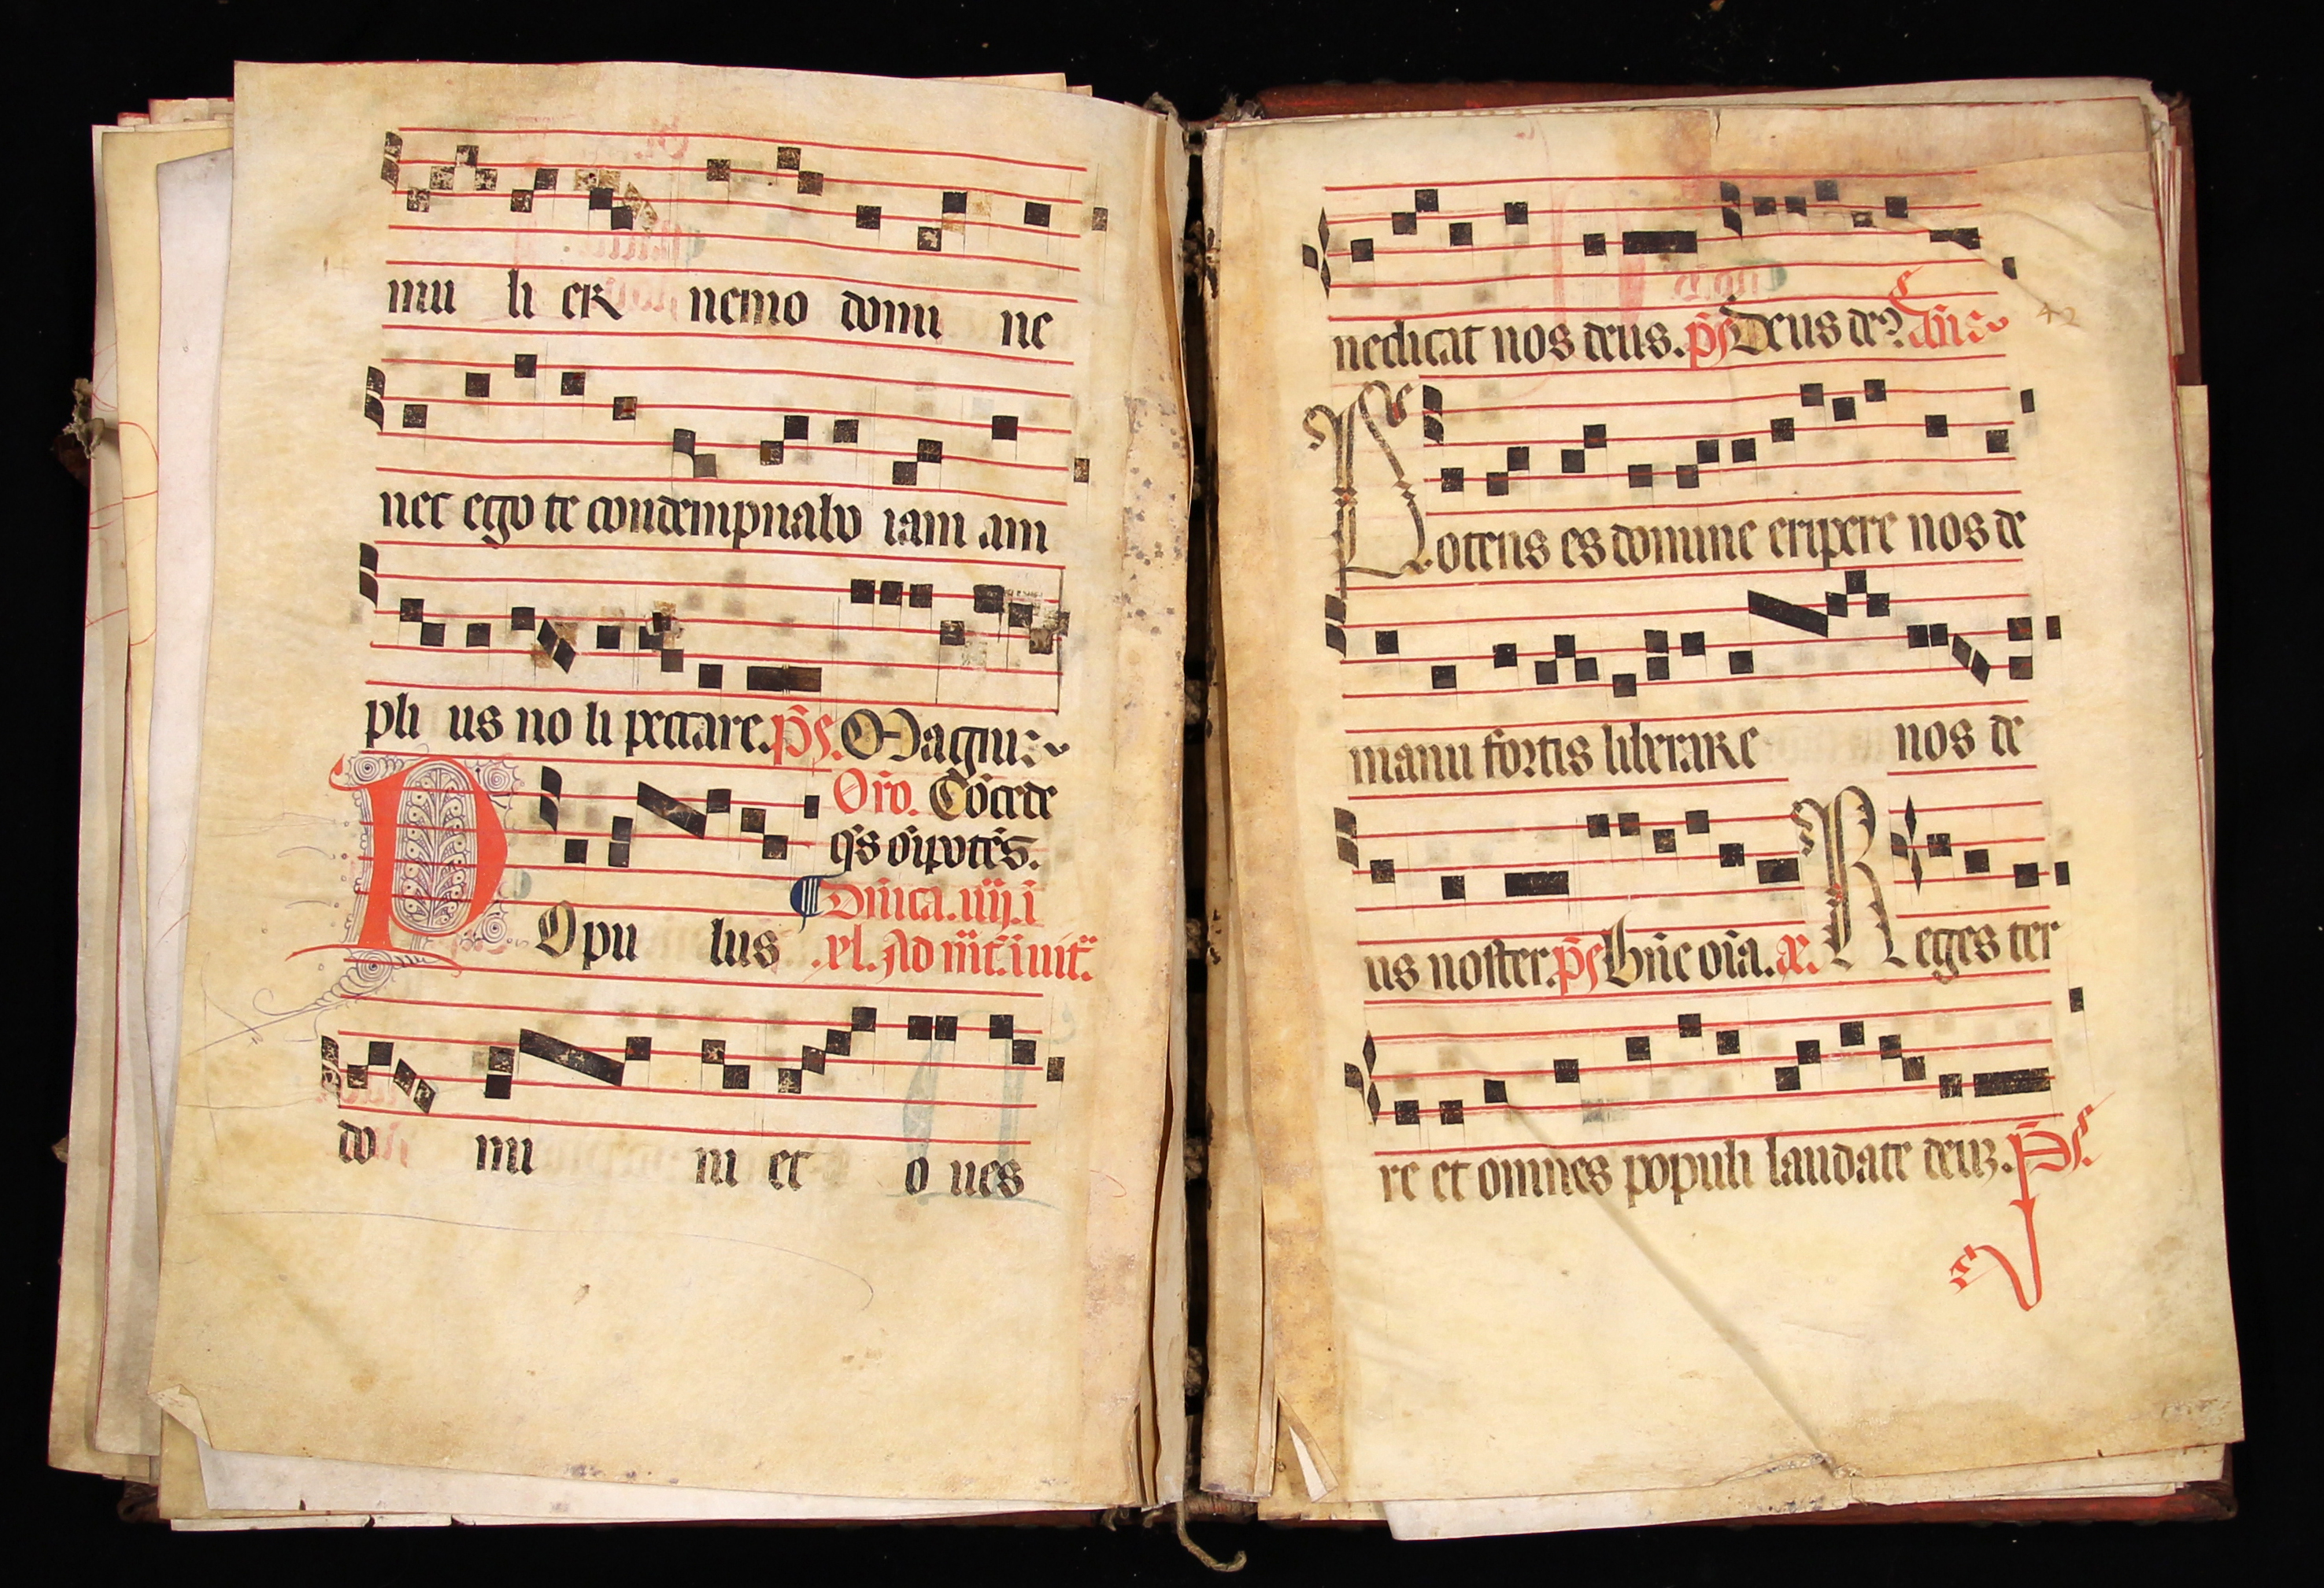 mu li er nemo domi ne
nec ego te condempnabo iam am
pli us no li peccare. p̄s. Magni
Oro. Cōcede
qs om̄potēs.
Dn̄ica. iiij. i
P Opu lus .xl. Ad mt̄. inuit.
do mi ni et o ues
nedicat nos deus. p̄s Deus de? ān̄s
Potens es domine eripere nos de
manu fortis liberare nos de
us noster. p̄s Bn̄e oīa. a. Reges ter
re et omnes populi laudate deuz. p̄s.
42